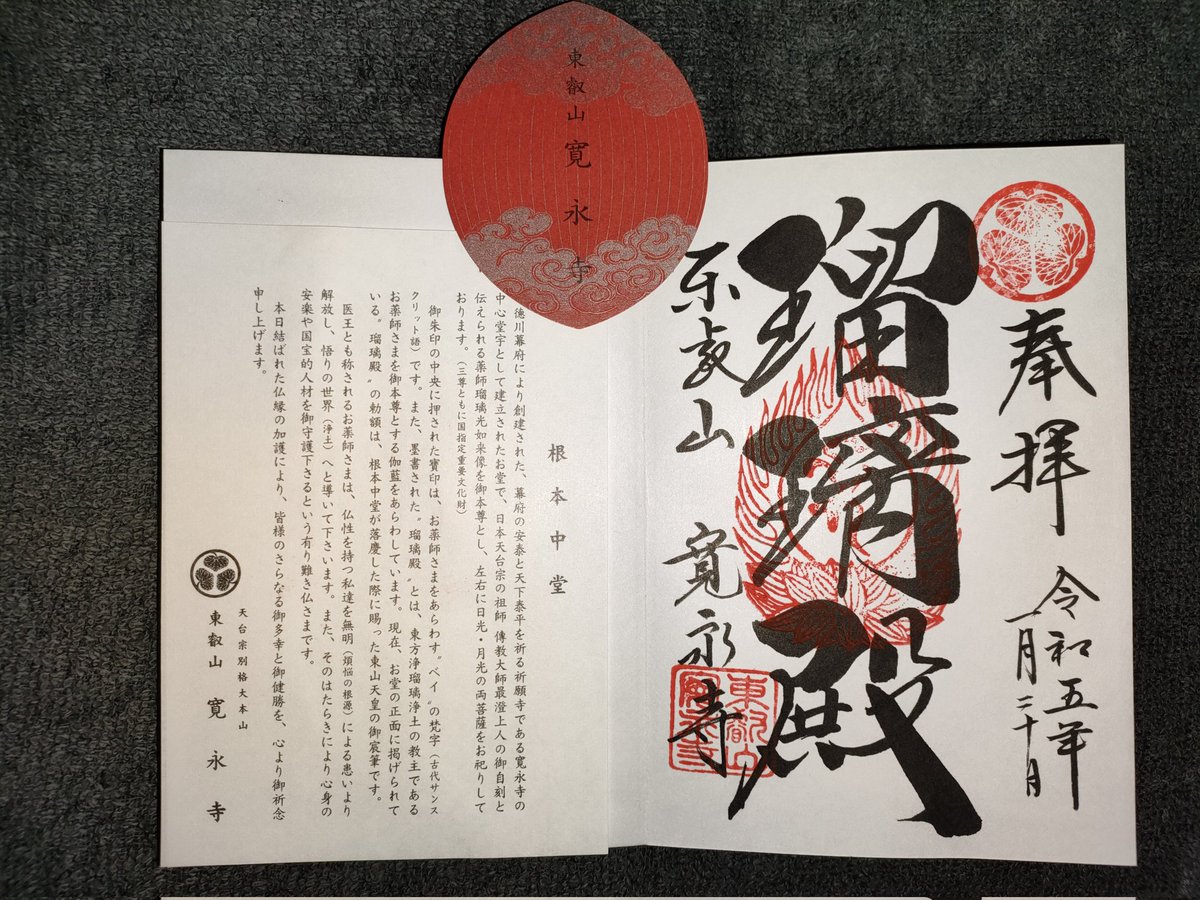 東叡山 寛永寺
奉拝
令和五年
一月二十日
瑠璃殿
东叡山 寛永寺
東叡山
寛永寺
根本中堂
徳川幕府により創建された、幕府の安泰と天下泰平を祈る祈願寺である寛永寺の
中心堂宇として建立されたお堂で、日本天台宗の祖師 傳教大師最澄上人の御自刻と
伝えられる薬師瑠璃光如来像を御本尊とし、左右に日光・月光の両菩薩をお祀りして
おります。(三尊ともに国指定重要文化財)
御朱印の中央に押された寳印は、お薬師さまをあらわす〝ベイ〟の梵字(古代サンス
クリット語)です。また、墨書された〝瑠璃殿〟とは、東方浄瑠璃浄土の教主である
お薬師さまを御本尊とする伽藍をあらわしています。現在、お堂の正面に掲げられて
いる〝瑠璃殿〟の勅額は、根本中堂が落慶した際に賜った東山天皇の御宸筆です。
医王とも称されるお薬師さまは、仏性を持つ私達を無明(煩悩の根源)による患いより
解放し、悟りの世界(浄土)へと導いて下さいます。また、そのはたらきにより心身の
安楽や国宝的人材を御守護下さるという有り難き仏さまです。
本日結ばれた仏縁の加護により、皆様のさらなる御多幸と御健勝を、心より御祈念
申し上げます。
天台宗別格大本山
東叡山 寛永寺